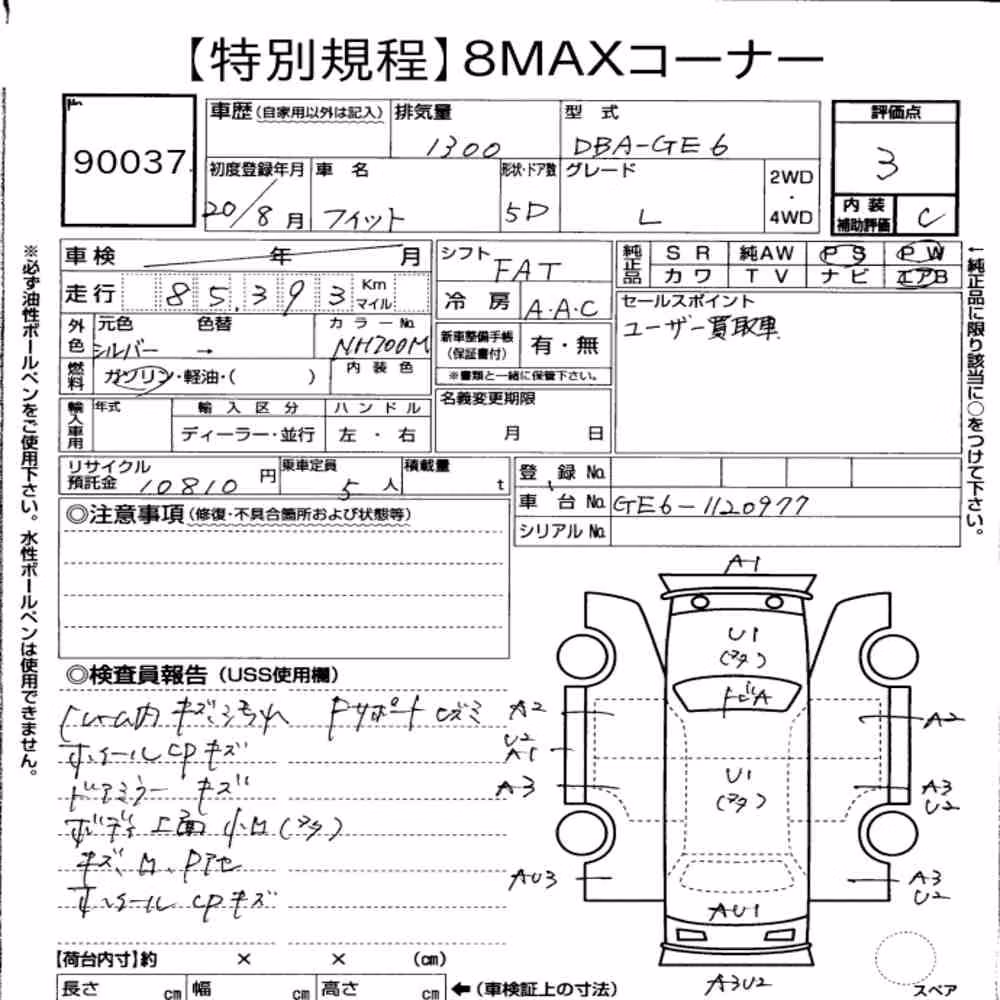 【特別規程】8MAXコーナー
90037
車歴 (自家用以外は記入)
排気量
1300
型式
DBA-GE6
評価点
3
初度登録年月
20/8月
車名
フィット
形状・ドア数
5D
グレード
L
2WD
・
4WD
内装
補助評価
C
車検 年 月
シフト
FAT
純正品
SR 純AW PS PW
カワ TV ナビ エアB
走行 85,393 Km マイル
冷房 A.A.C
セールスポイント
ユーザー買取車
外色
元色 色替 カラーNo.
シルバー → NH700M
新車整備手帳
(保証書付)
有・無
※書類と一緒に保管下さい。
燃料
ガソリン・軽油・( )
内装色
名義変更期限
月 日
輸入車用
年式 輸入区分 ハンドル
ディーラー・並行 左・右
リサイクル
預託金 10810 円
乗車定員
5人
積載量
t
登録No.
車台No. GE6-1120977
シリアルNo.
◎注意事項 (修復・不具合箇所および状態等)
◎検査員報告 (USS使用欄)
ホイールCPキズ
ドアミラー キズ
ボディ上面 小
キズ、
ホイールCPキズ
A1
U1
A2
U2
A1
A3
AU3
U1
A2
A3
U2
A3
U2
AU1
A3U2
スペア
【荷台内寸】約 × × (cm)
長さ cm 幅 cm 高さ cm ←(車検証上の寸法)
※必ず油性ボールペンをご使用下さい。水性ボールペンは使用できません。
←純正品に限り該当に○をつけて下さい。